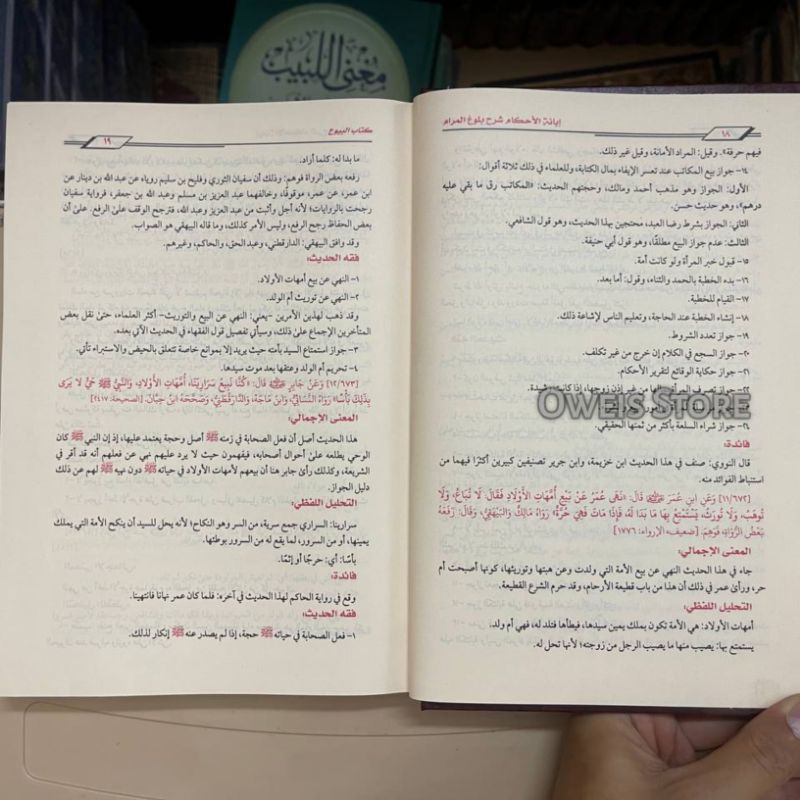 مغني اللبيب
١٨
إبانة الأحكام شرح بلوغ المرام
فيهم حرفة». وقيل: المراد الأمانة، وقيل غير ذلك.
١٤- جواز بيع المكاتب عند تعسر الإيفاء بمال الكتابة، وللعلماء في ذلك ثلاثة أقوال:
الأول: الجواز وهو مذهب أحمد ومالك، وحجتهم الحديث: «المكاتب رق ما بقي عليه
درهم»، وهو حديث حسن.
الثاني: الجواز بشرط رضا العبد، محتجين بهذا الحديث، وهو قول الشافعي.
الثالث: عدم جواز البيع مطلقًا، وهو قول أبي حنيفة.
١٥- قبول خبر المرأة ولو كانت أمة.
١٦- بدء الخطبة بالحمد والثناء، وقول: أما بعد.
١٧- القيام للخطبة.
١٨- إنشاء الخطبة عند الحاجة، وتعليم الناس لإشاعة ذلك.
١٩- جواز تعدد الشروط.
٢٠- جواز السجع في الكلام إن خرج من غير تكلف.
٢١- جواز حكاية الوقائع لتقرير الأحكام.
٢٢- جواز تصرف المرأة في مالها من غير إذن زوجها، إذا كانت رشيدة.
OWEIS STORE
٢٤- جواز شراء السلعة بأكثر من ثمنها الحقيقي.
فائدة:
قال النووي: صنف في هذا الحديث ابن خزيمة، وابن جرير تصنيفين كبيرين أكثرًا فيهما من
استنباط الفوائد منه.
[١١/٦٧٢] وَعَنِ ابْنِ عُمَرَ قَالَ: «نَهَى عُمَرُ عَنْ بَيْعِ أُمَّهَاتِ الْأَوْلَادِ فَقَالَ: لَا تُبَاعُ، وَلَا
تُوهَبُ، وَلَا تُورَثُ، يَسْتَمْتِعُ بِهَا مَا بَدَا لَهُ، فَإِذَا مَاتَ فَهِيَ حُرَّةٌ» رَوَاهُ مَالِكٌ وَالْبَيْهَقِيُّ، وَقَالَ: رَفَعَهُ
بَعْضُ الرُّوَاةِ، فَوَهِمَ: [ضعيف، الإرواء: ١٧٧٦]
المعنى الإجمالي:
جاء في هذا الحديث النهي عن بيع الأمة التي ولدت وعن هبتها وتوريثها، كونها أصبحت أم
حر، ورأى عمر في ذلك أن هذا من باب قطيعة الأرحام، وقد حرم الشرع القطيعة.
التحليل اللفظي:
أمهات الأولاد: هي الأمة تكون بملك يمين سيدها، فيطأها فتلد له، فهي أم ولد.
يستمتع بها: يصيب منها ما يصيب الرجل من زوجته؛ لأنها تحل له.
كتاب البيوع
١٩
ما بدا له: كلما أراد.
رفعه بعض الرواة فوهم: وذلك أن سفيان الثوري وفليح بن سليم روياه عن عبد الله بن دينار عن
ابن عمر، عن عمر، موقوفًا، وخالفهما عبد العزيز بن مسلم وعبد الله بن جعفر، فرواية سفيان
رجحت بالروايات؛ لأنه أجل وأثبت من عبد العزيز وعبد الله، فترجح الوقف على الرفع. على أن
بعض الحفاظ رجح الرفع، وليس الأمر كذلك، وما قاله البيهقي هو الصواب.
وقد وافق البيهقي: الدارقطني، وعبد الحق، والحاكم، وغيرهم.
فقه الحديث:
١- النهي عن بيع أمهات الأولاد.
٢- النهي عن توريث أم الولد.
وقد ذهب لهذين الأمرين -يعني: النهي عن البيع والتوريث- أكثر العلماء، حتى نقل بعض
المتأخرين الإجماع على ذلك، وسيأتي تفصيل قول الفقهاء في الحديث الآتي بعده.
٣- جواز استمتاع السيد بأمته حيث يريد إلا بموانع خاصة تتعلق بالحيض والاستبراء تأتي.
٤- تحريم أم الولد وعتقها بعد موت سيدها.
[١٢/٦٧٣] وَعَنْ جَابِرٍ قَالَ: «كُنَّا نَبِيعُ سَرَارِيَنَا، أُمَّهَاتِ الْأَوْلَادِ، وَالنَّبِيُّ ﷺ حَيٌّ لَا يَرَى
بِذَلِكَ بَأْسًا» رَوَاهُ النَّسَائِيُّ، وَابْنُ مَاجَهْ، وَالدَّارَقُطْنِيُّ، وَصَحَّحَهُ ابْنُ حِبَّانَ. [الصحيحة: ٢٤١٧]
المعنى الإجمالي:
هذا الحديث أصل أن فعل الصحابة في زمنه ﷺ أصل وحجة يعتمد عليها، إذ إن النبي ﷺ كان
الوحي يطلعه على أحوال أصحابه، فيفهمون حيث لا يرد عليهم نهي عن فعلهم أنه قد أقر في
الشريعة، وكذلك رأى جابر هنا أن بيعهم لأمهات الأولاد في حياته ﷺ دون نهيه ﷺ لهم عن ذلك
دليل الجواز.
التحليل اللفظي:
سرارينا: السراري جمع سرية، من السر وهو النكاح؛ لأنه يحل للسيد أن ينكح الأمة التي يملك
يمينها، أو من السرور، لما يقع له من السرور بوطئها.
بأسًا: أي: حرجًا أو إثمًا.
فائدة:
وقع في رواية الحاكم لهذا الحديث في آخره: فلما كان عمر نهانا فانتهينا.
فقه الحديث:
١- فعل الصحابة في حياته ﷺ حجة، إذا لم يصدر عنه ﷺ إنكار لذلك.